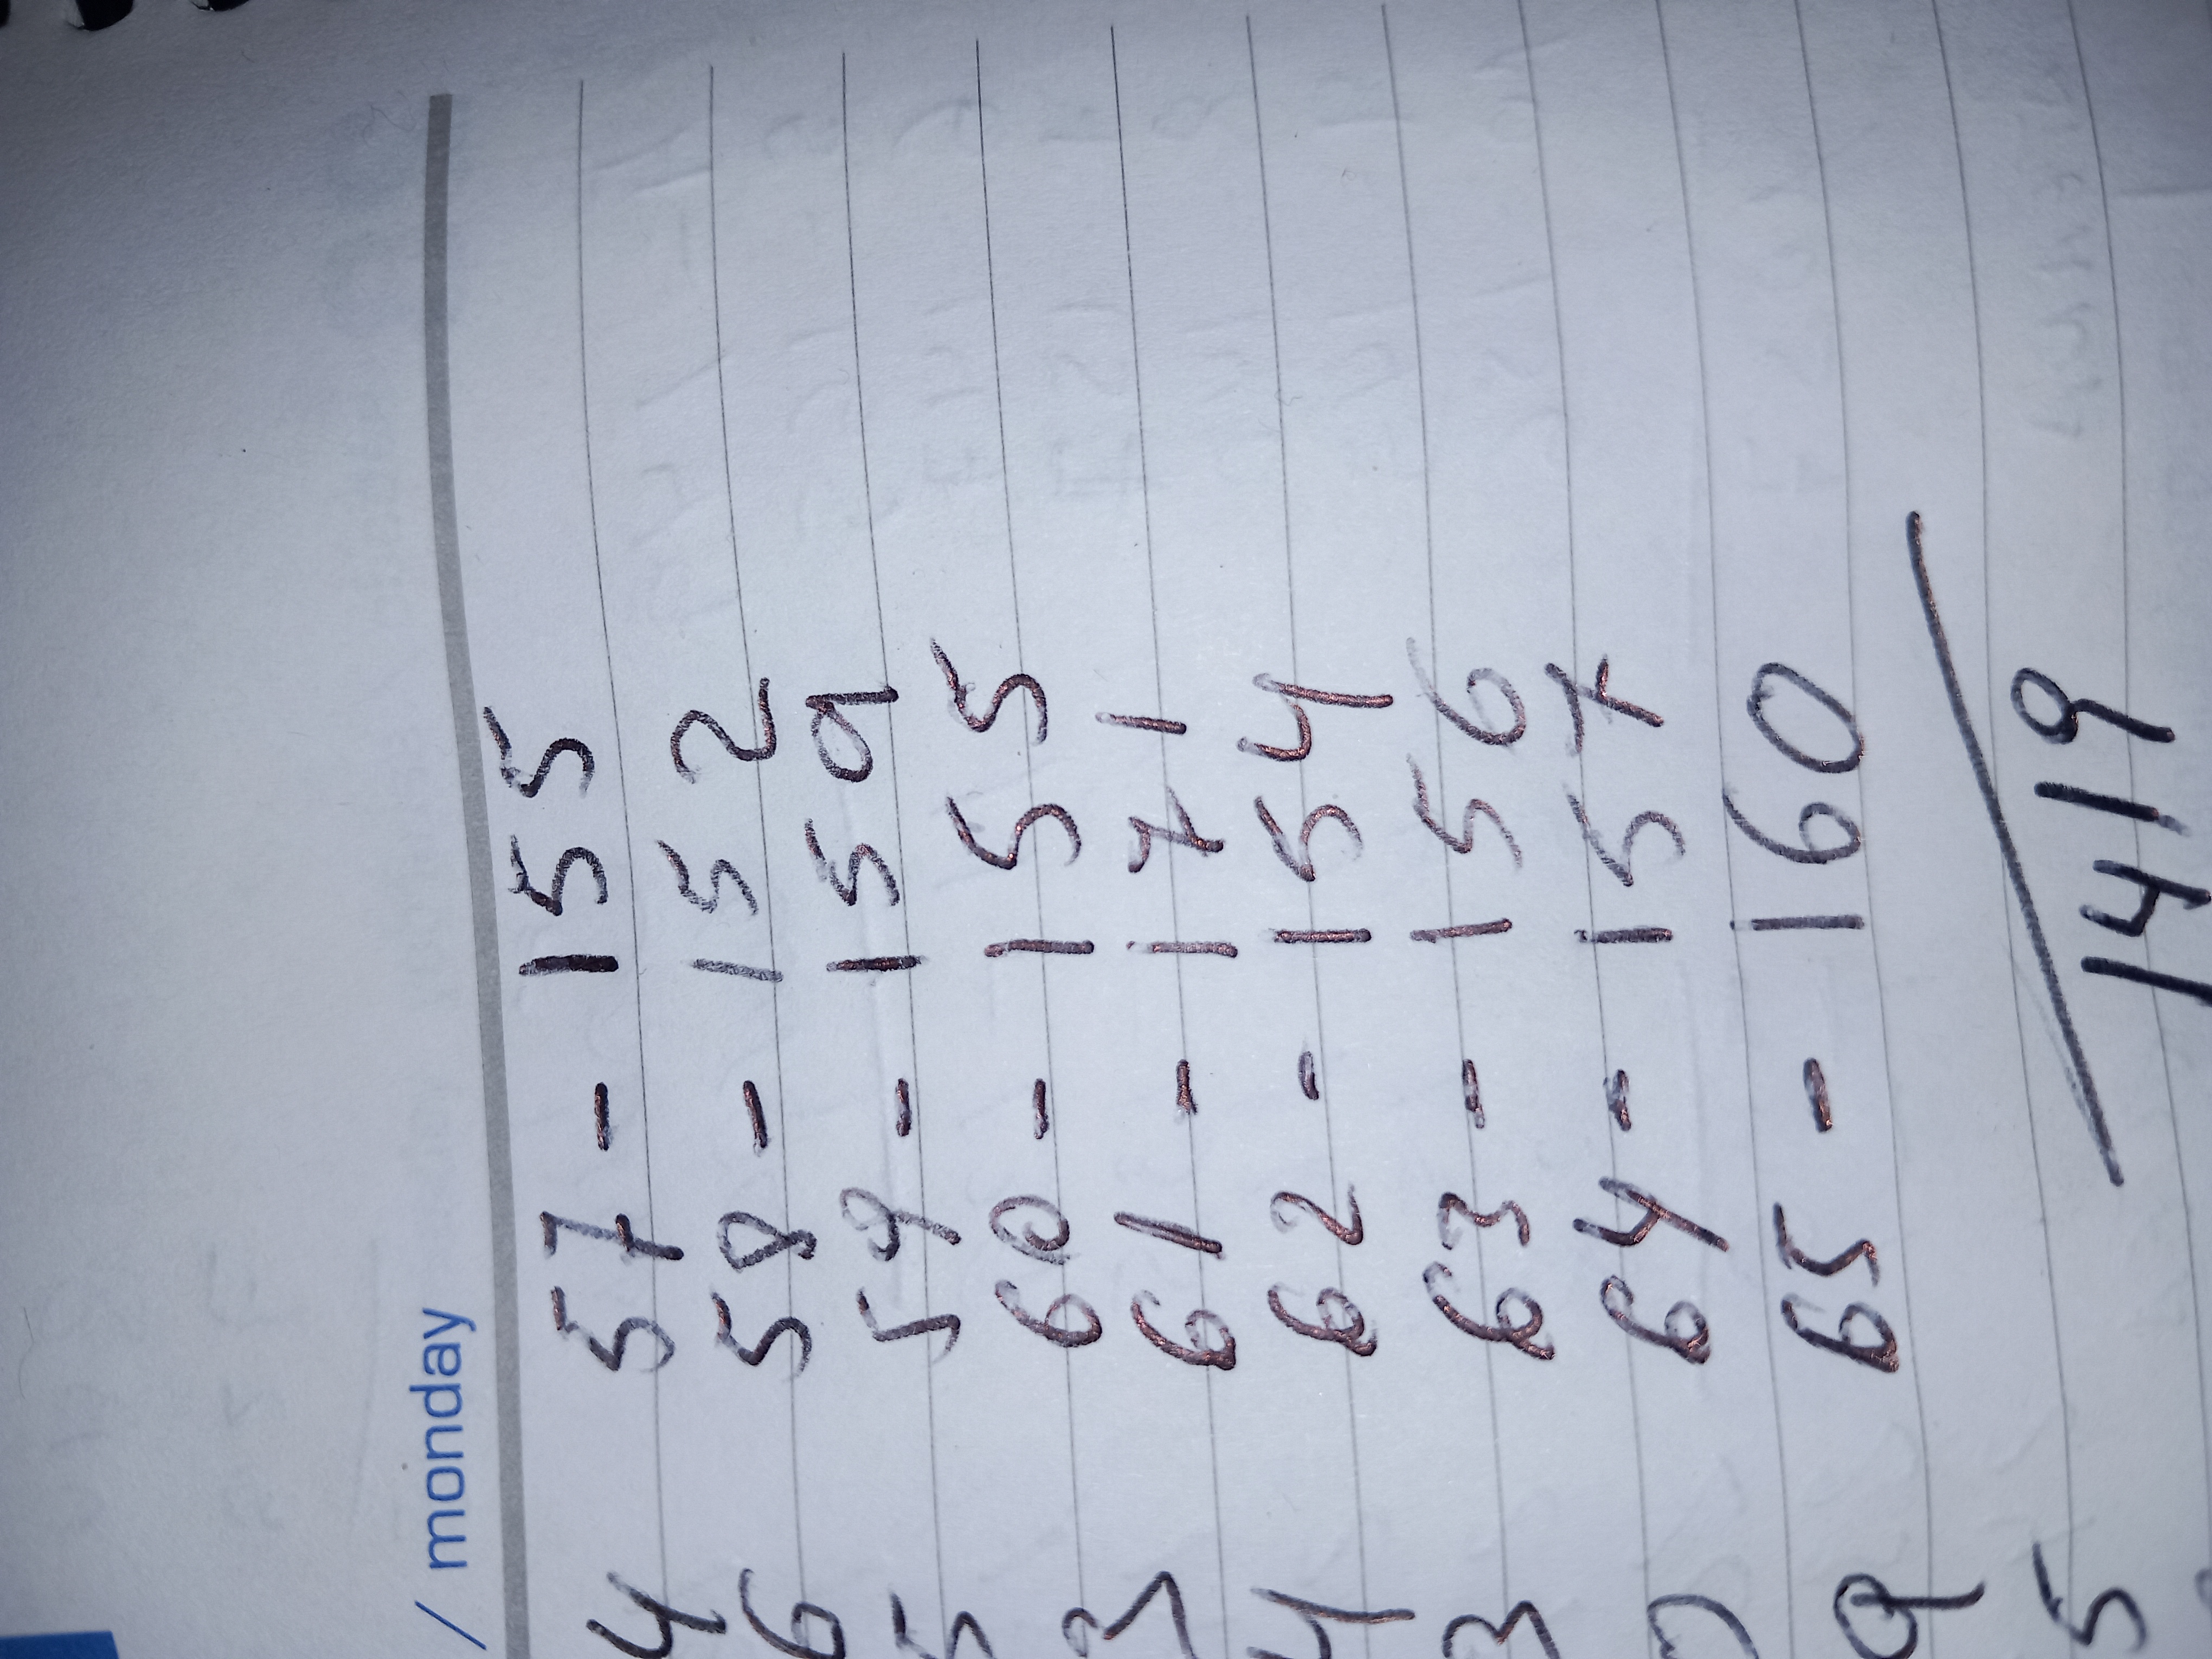 / monday
4 57 - 155
6 58 - 152
5 59 - 159
3 60 - 155
4 61 - 171
3 62 - 154
63 - 156
9 64 - 157
5 65 - 160
1419